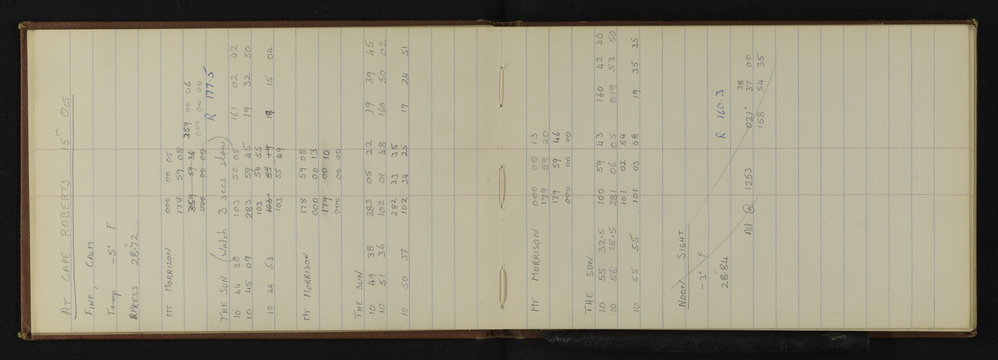 AT CAPE ROBERTS 15th Oct
FINE, CALM
Temp -5° F
PRESS 28.72"
MT MORRISON 000 00 05
178 59 08
359 59 36 359 00 06
000 00 00 000 00 00
R 177.5
THE SUN (Watch 3 secs slow)
10 44 38 103 50 05 161 02 42
10 45 09 283 59 45 19 32 50
103 54 55
10 44 53 103 55 19 19 15 04
103 55 49
MT MORRISON 178 59 08
000 00 13
179 00 10
000 00 00
THE SUN
10 49 38 283 05 22 19 39 45
10 51 36 102 01 48 160 50 02
282 33 35
10 50 37 102 34 25 19 24 51
MT MORRISON 000 00 13
179 59 20
179 59 46
000 00 00
THE SUN
10 55 32.5 100 59 43 160 42 40
10 56 15.5 281 06 05 019 53 50
101 02 54
10 55 55 101 03 08 19 35 35
NOON SIGHT
-3° F
28.84"
R 160.3
38
Alt @ 1253 021° 37 00
158 54 35